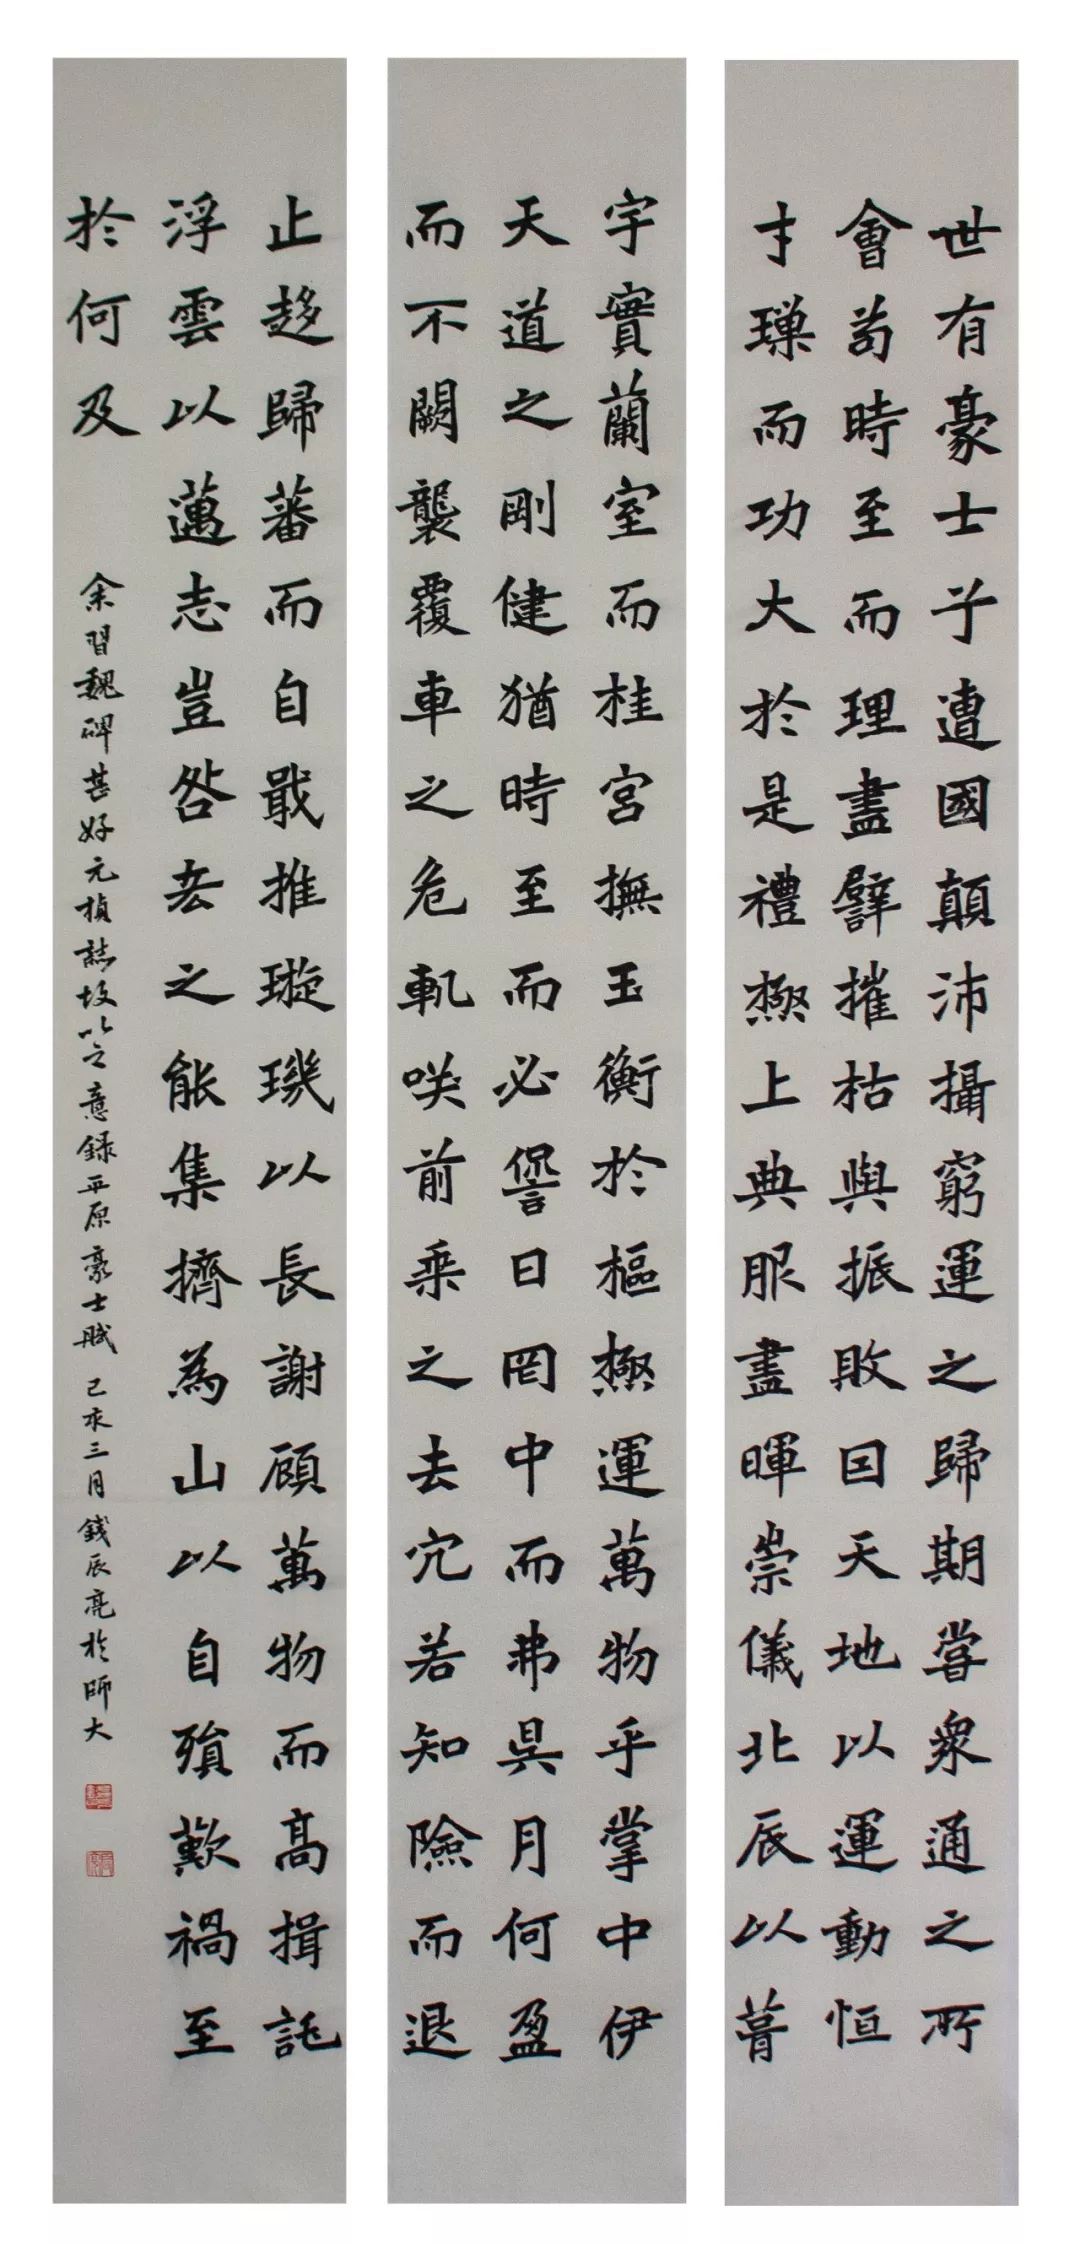 世有豪士兮遭國顛沛攝窮運之歸期當衆通之所
會苟時至而理盡譬摧枯與振敗因天地以運動恒
才瑣而功大於是禮極上典服盡暉崇儀北辰以葺
宇實蘭室而桂宮撫玉衡於樞極運萬物乎掌中伊
天道之剛健猶時至而必諐日罔中而弗昃月何盈
而不闕襲覆車之危軌咲前乘之去穴若知險而退
止趍歸蕃而自戢推璇璣以長謝顧萬物而高揖託
浮雲以邁志豈咎去之能集擠為山以自殞歎禍至
於何及
余習魏碑甚好元楨誌故以之意録平原豪士賦 己亥三月 錢辰亮於師大